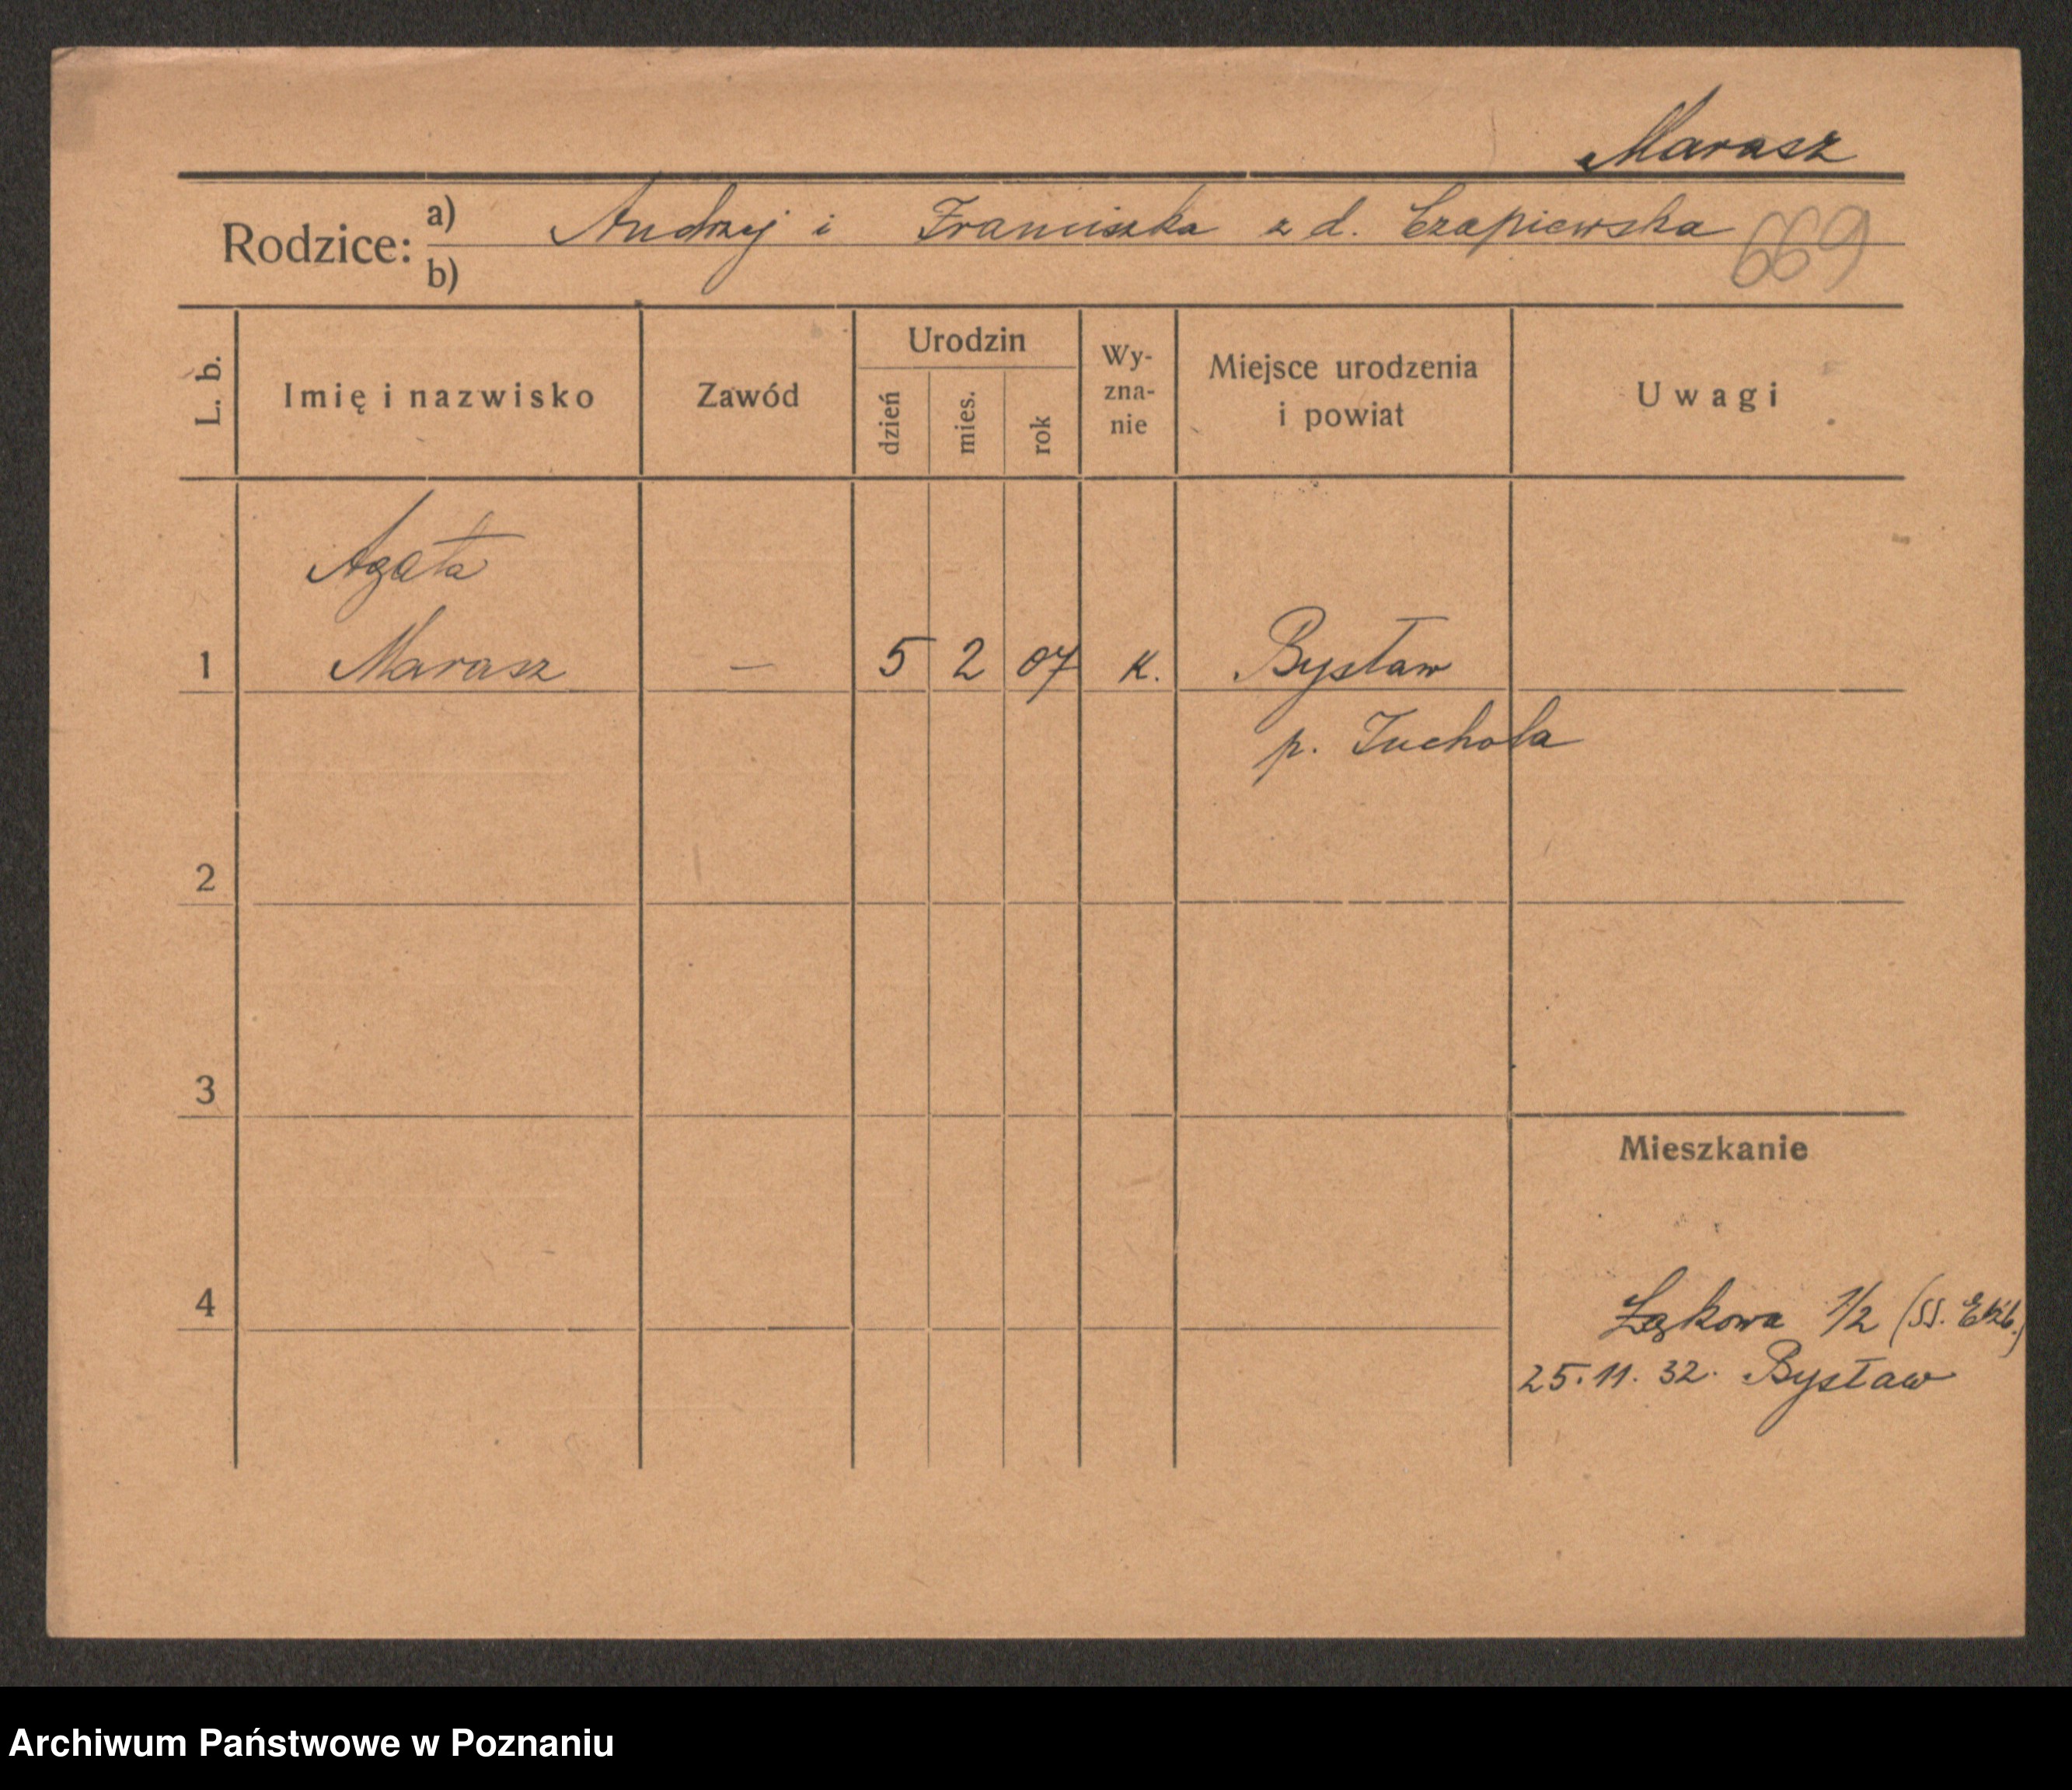 Marasz
Rodzice: a) Andrzej i Franciszka z d. Czapiewska
b)
669
L. b.
Imię i nazwisko
Zawód
Urodzin
dzień
mies.
rok
Wy-
zna-
nie
Miejsce urodzenia
i powiat
Uwagi
Agata
1 Marasz – 5 2 07 k. Bysław
p. Tuchola
2
3
Mieszkanie
4
Łąkowa 1/2 (SS. Elżb.)
25.11.32. Bysław
Archiwum Państwowe w Poznaniu